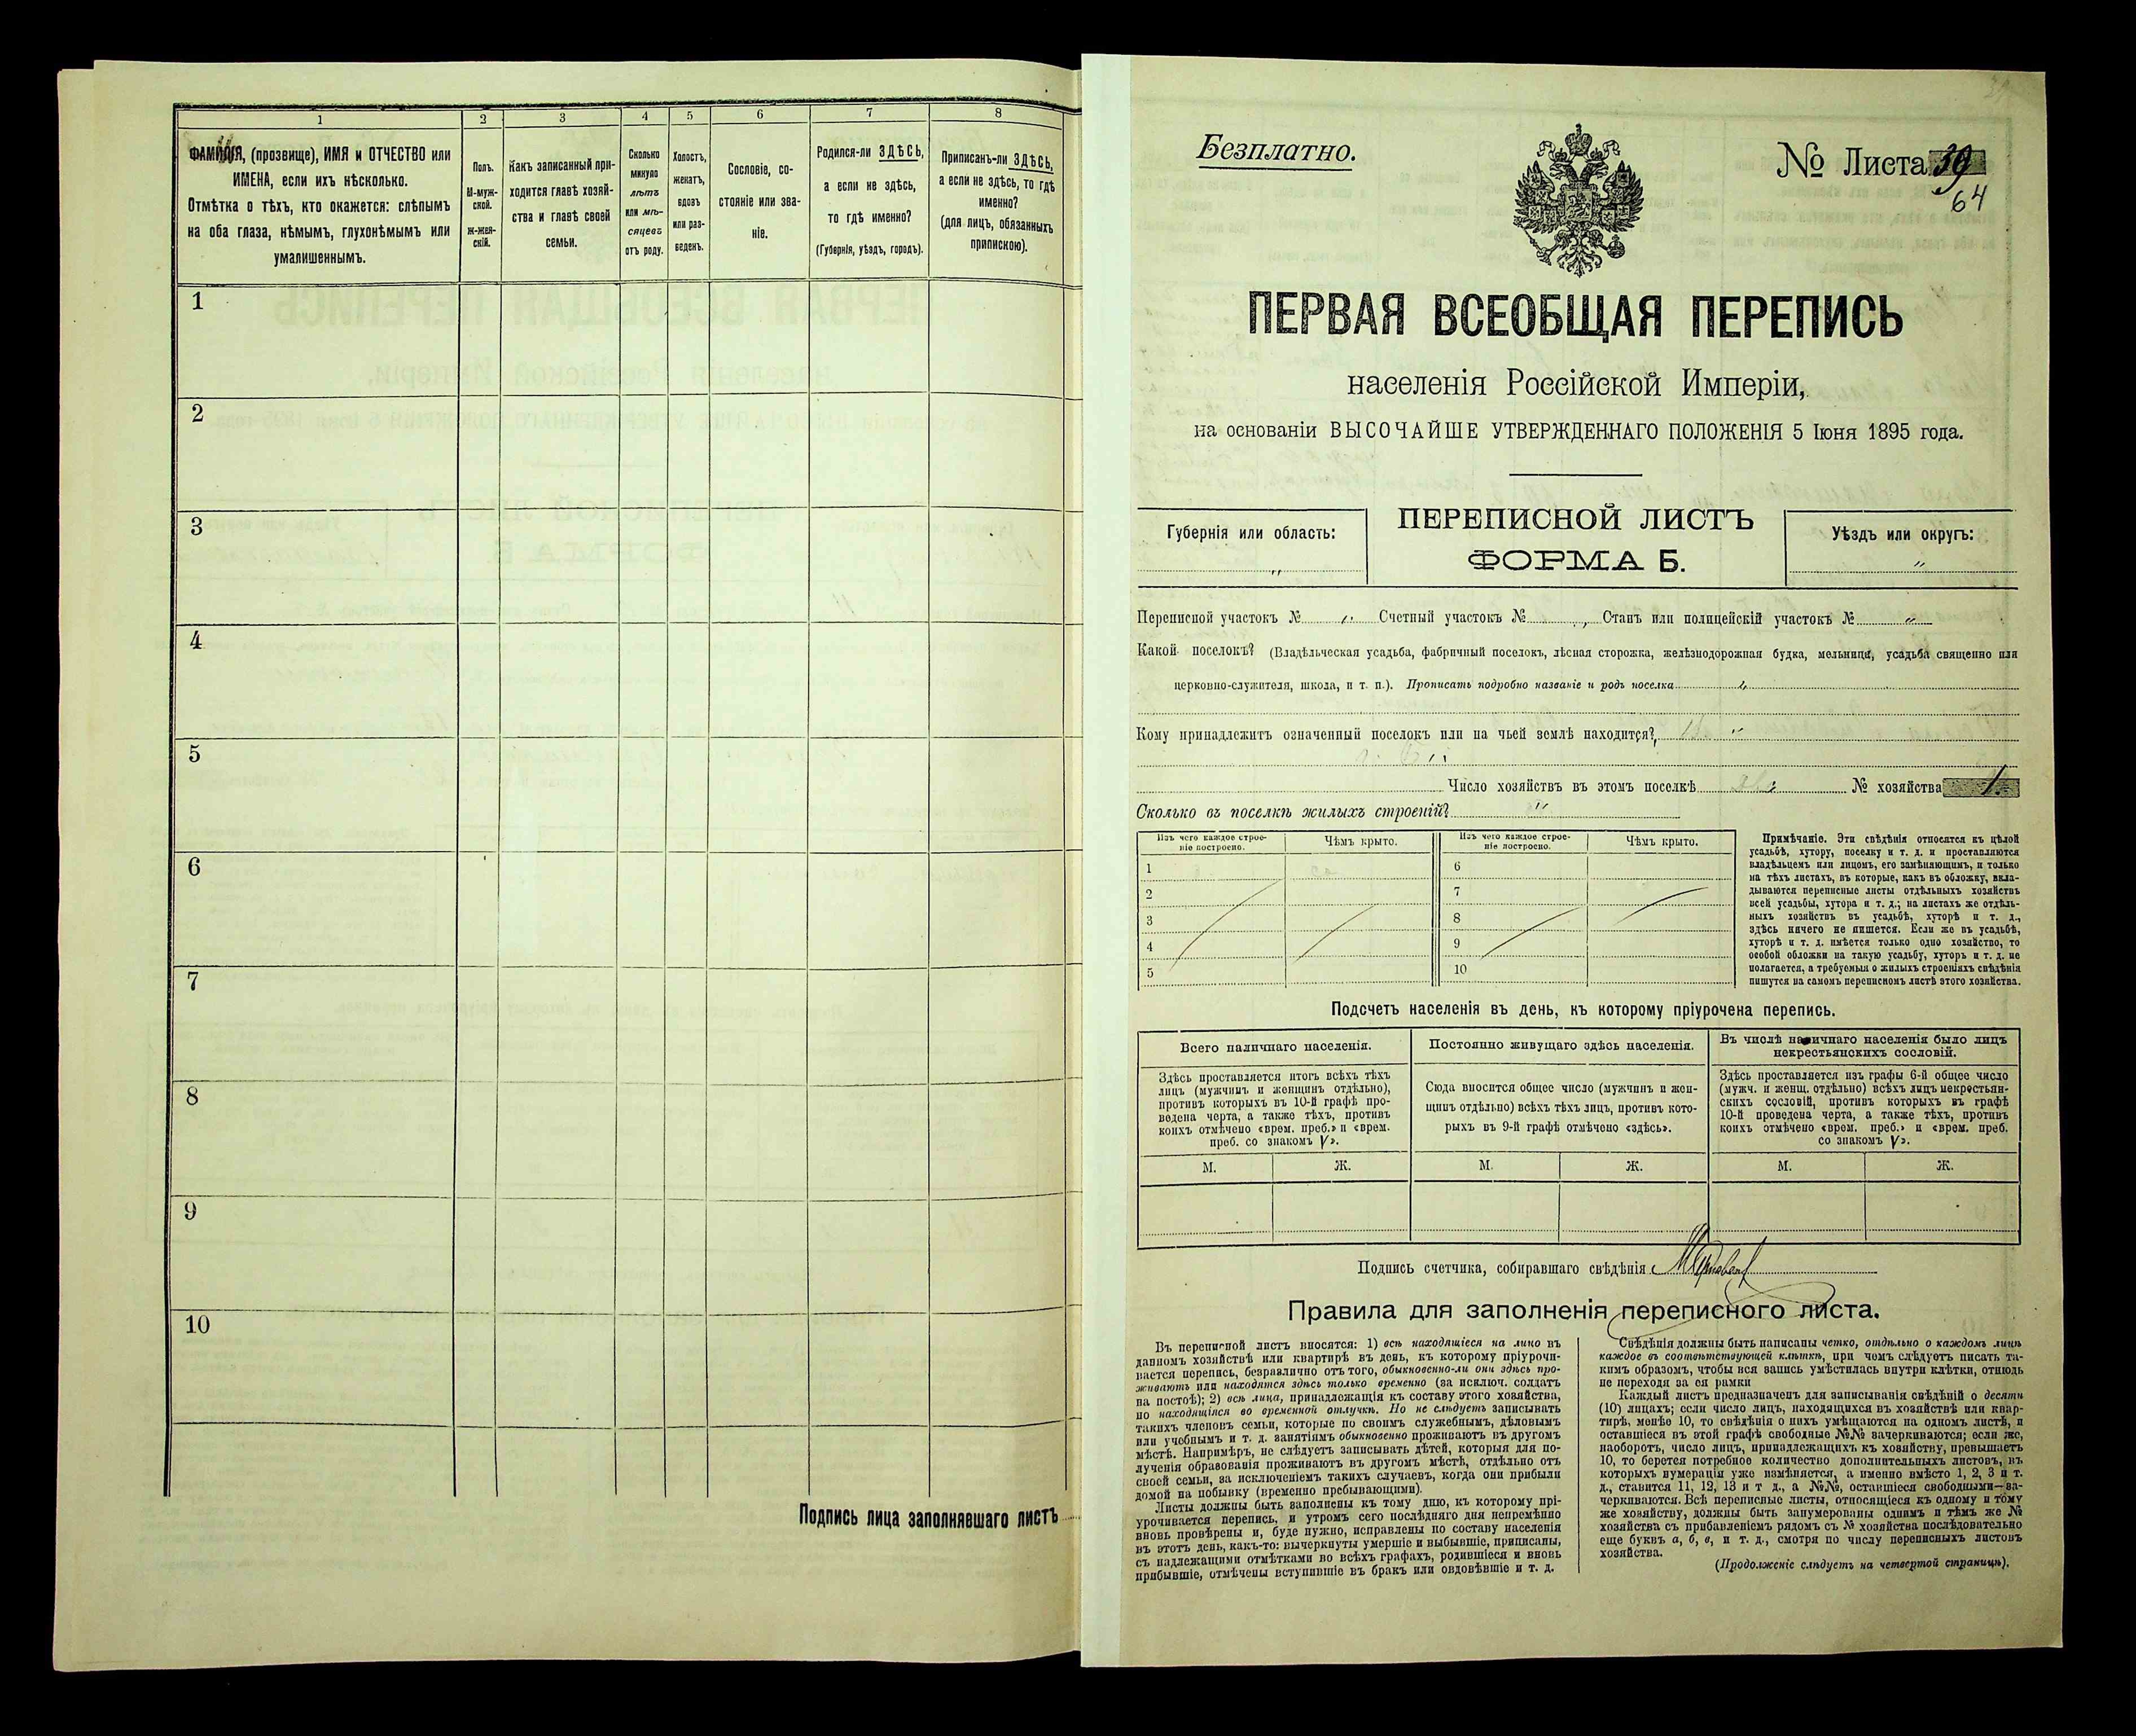 1
2
3
4
5
6
7
8
ФАМИЛІЯ, (прозвище), ИМЯ и ОТЧЕСТВО или
ИМЕНА, если ихъ нѣсколько.
Отмѣтка о тѣхъ, кто окажется: слѣпымъ
на оба глаза, нѣмымъ, глухонѣмымъ или
умалишеннымъ.
Полъ.
М-муж-
ской.
Ж-жен-
скій.
Какъ записанный при-
ходится главѣ хозяй-
ства и главѣ своей
семьи.
Сколько
минуло
лѣтъ
или мѣ-
сяцевъ
отъ роду.
Холостъ,
женатъ,
вдовъ
или раз-
веденъ.
Сословіе, со-
стояніе или зва-
ніе.
Родился-ли ЗДѢСЬ,
а если не здѣсь,
то гдѣ именно?
(Губернія, уѣздъ, городъ).
Приписанъ-ли ЗДѢСЬ,
а если не здѣсь, то гдѣ
именно?
(для лицъ, обязанныхъ
припискою).
1
2
3
4
5
6
7
8
9
10
Подпись лица заполнявшаго листъ
Безплатно.
№ Листа 39
64
ПЕРВАЯ ВСЕОБЩАЯ ПЕРЕПИСЬ
населенія Россійской Имперіи,
на основаніи ВЫСОЧАЙШЕ УТВЕРЖДЕННАГО ПОЛОЖЕНІЯ 5 Іюня 1895 года.
Губернія или область:
"
ПЕРЕПИСНОЙ ЛИСТЪ
ФОРМА Б.
Уѣздъ или округъ:
"
Переписной участокъ № " Счетный участокъ № " Станъ или полицейскій участокъ № "
Какой поселокъ? (Владѣльческая усадьба, фабричный поселокъ, лѣсная сторожка, желѣзнодорожная будка, мельница, усадьба священно или
церковно-служителя, школа, и т. п.). Прописать подробно названіе и родъ поселка "
Кому принадлежитъ означенный поселокъ или на чьей землѣ находится? "
Число хозяйствъ въ этомъ поселкѣ № хозяйства 1.
Сколько въ поселкѣ жилыхъ строеній? "
Изъ чего каждое строе-
ніе построено.
Чѣмъ крыто.
Изъ чего каждое строе-
ніе построено.
Чѣмъ крыто.
1
2
3
4
5
6
7
8
9
10
Примѣчаніе. Эти свѣдѣнія относятся къ цѣлой
усадьбѣ, хутору, поселку и т. д. и проставляются
владѣльцемъ или лицомъ, его замѣняющимъ, и только
на тѣхъ листахъ, въ которые, какъ въ обложку, вкла-
дываются переписные листы отдѣльныхъ хозяйствъ
всей усадьбы, хутора и т. д.; на листахъ же отдѣль-
ныхъ хозяйствъ въ усадьбѣ, хуторѣ и т. д.,
здѣсь ничего не пишется. Если же въ усадьбѣ,
хуторѣ и т. д. имѣется только одно хозяйство, то
особой обложки на такую усадьбу, хуторъ и т. д. не
полагается, а требуемыя о жилыхъ строеніяхъ свѣдѣнія
пишутся на самомъ переписномъ листѣ этого хозяйства.
Подсчетъ населенія въ день, къ которому пріурочена перепись.
Всего наличнаго населенія.
Здѣсь проставляется итогъ всѣхъ тѣхъ
лицъ (мужчинъ и женщинъ отдѣльно),
противъ которыхъ въ 10-й графѣ про-
ведена черта, а также тѣхъ, противъ
коихъ отмѣчено «врем. преб.» и «врем.
преб. со знакомъ V».
Постоянно живущаго здѣсь населенія.
Сюда вносится общее число (мужчинъ и жен-
щинъ отдѣльно) всѣхъ тѣхъ лицъ, противъ кото-
рыхъ въ 9-й графѣ отмѣчено «здѣсь».
Въ числѣ наличнаго населенія было лицъ
некрестьянскихъ сословій.
Здѣсь проставляется изъ графы 6-й общее число
(мужч. и женщ. отдѣльно) всѣхъ лицъ некрестьян-
скихъ сословій, противъ которыхъ въ графѣ
10-й проведена черта, а также тѣхъ, противъ
коихъ отмѣчено «врем. преб.» и «врем. преб.
со знакомъ V».
М.
Ж.
М.
Ж.
М.
Ж.
Подпись счетчика, собиравшаго свѣдѣнія
Правила для заполненія переписного листа.
Въ переписной листъ вносятся: 1) всѣ находящіеся на лицо въ
данномъ хозяйствѣ или квартирѣ въ день, къ которому пріурочи-
вается перепись, безразлично отъ того, обыкновенно-ли они здѣсь про-
живаютъ или находятся здѣсь только временно (за исключ. солдатъ
на постоѣ); 2) всѣ лица, принадлежащія къ составу этого хозяйства,
но находящіяся во временной отлучкѣ. Но не слѣдуетъ записывать
такихъ членовъ семьи, которые по своимъ служебнымъ, дѣловымъ
или учебнымъ и т. д. занятіямъ обыкновенно проживаютъ въ другомъ
мѣстѣ. Напримѣръ, не слѣдуетъ записывать дѣтей, которыя для по-
лученія образованія проживаютъ въ другомъ мѣстѣ, отдѣльно отъ
своей семьи, за исключеніемъ такихъ случаевъ, когда они прибыли
домой на побывку (временно пребывающими).
Листы должны быть заполнены къ тому дню, къ которому прі-
урочивается перепись, и утромъ сего послѣдняго дня непремѣнно
вновь провѣрены и, буде нужно, исправлены по составу населенія
въ этотъ день, какъ-то: вычеркнуты умершіе и выбывшіе, приписаны,
съ надлежащими отмѣтками во всѣхъ графахъ, родившіеся и вновь
прибывшіе, отмѣчены вступившіе въ бракъ или овдовѣвшіе и т. д.
Свѣдѣнія должны быть написаны четко, отдѣльно о каждомъ лицѣ
каждое въ соотвѣтствующей клѣткѣ, при чемъ слѣдуетъ писать та-
кимъ образомъ, чтобы вся запись умѣстилась внутри клѣтки, отнюдь
не переходя за ея рамки
Каждый листъ предназначенъ для записыванія свѣдѣній о десяти
(10) лицахъ; если число лицъ, находящихся въ хозяйствѣ или квар-
тирѣ, менѣе 10, то свѣдѣнія о нихъ умѣщаются на одномъ листѣ, а
оставшіеся въ этой графѣ свободные №№ зачеркиваются; если же,
наоборотъ, число лицъ, принадлежащихъ къ хозяйству, превышаетъ
10, то берется потребное количество дополнительныхъ листовъ, въ
которыхъ нумерація уже измѣняется, а именно вмѣсто 1, 2, 3 и т.
д., ставится 11, 12, 13 и т д., а №№, оставшіеся свободными—за-
черкиваются. Всѣ переписные листы, относящіеся къ одному и тому
же хозяйству, должны быть занумерованы однимъ и тѣмъ же №
хозяйства съ прибавленіемъ рядомъ съ № хозяйства послѣдовательно
еще буквъ а, б, в, и т. д., смотря по числу переписныхъ листовъ
хозяйства.
(Продолженіе слѣдуетъ на четвертой страницѣ).